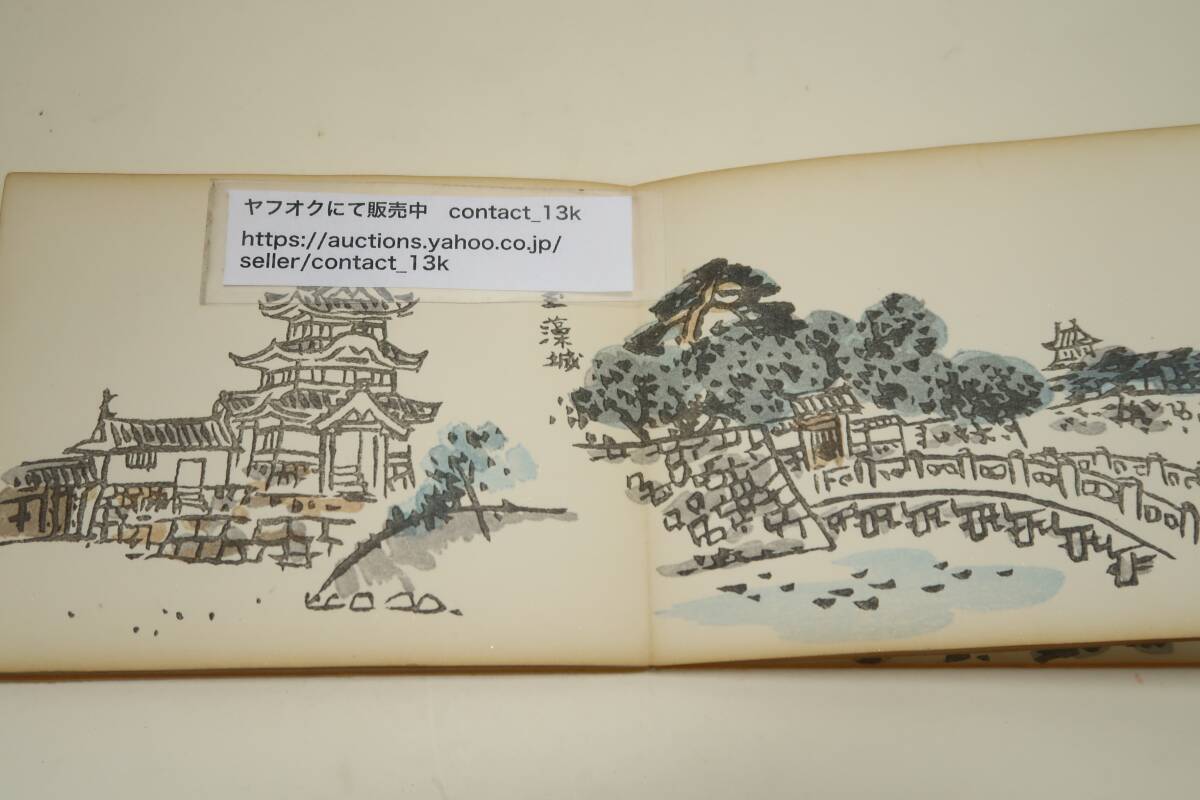 ヤフオクにて販売中　contact_13k
https://auctions.yahoo.co.jp/
seller/contact_13k
藻城